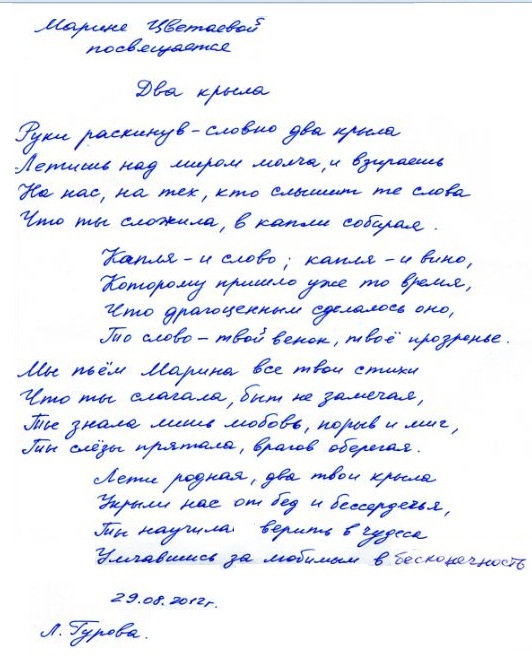 Марине Цветаевой
посвещается
Два крыла
Руки раскинув - словно два крыла
Летишь над миром молча, и взираешь
На нас, на тех, кто слышит те слова
Что ты сложила, в капли собирая.
Капля - и слово; капля - и вино,
Которому пришло уже то время,
Что драгоценным сделалось оно,
То слово - твой венок, твоё прозренье.
Мы пьём Марина все твои стихи
Что ты слагала, быт не замечая,
Ты знала лишь любовь, порыв и миг,
Ты слёзы прятала, врагов оберегая.
Лети родная, два твои крыла
Укрыли нас от бед и бессердечья,
Ты научила верить в чудеса
Умчавшись за любимым в бесконечность
29.08.2012г.
Л. Гурова.